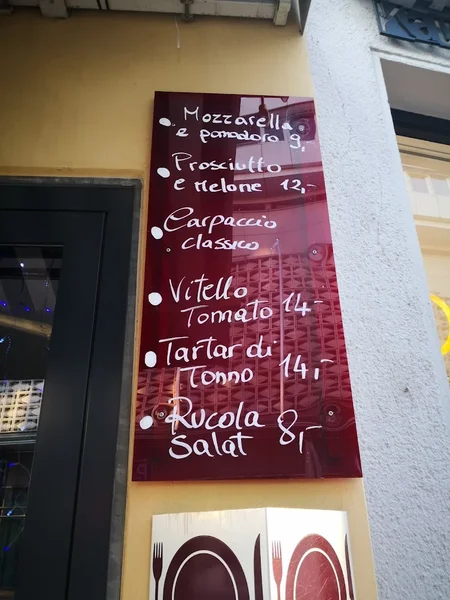 Mozzarella
e pomodoro 9,-
Prosciutto
e Melone 12,-
Carpaccio
classico
Vitello
Tonnato 14-
Tartar di
Tonno 14,-
Rucola
Salat 8,-